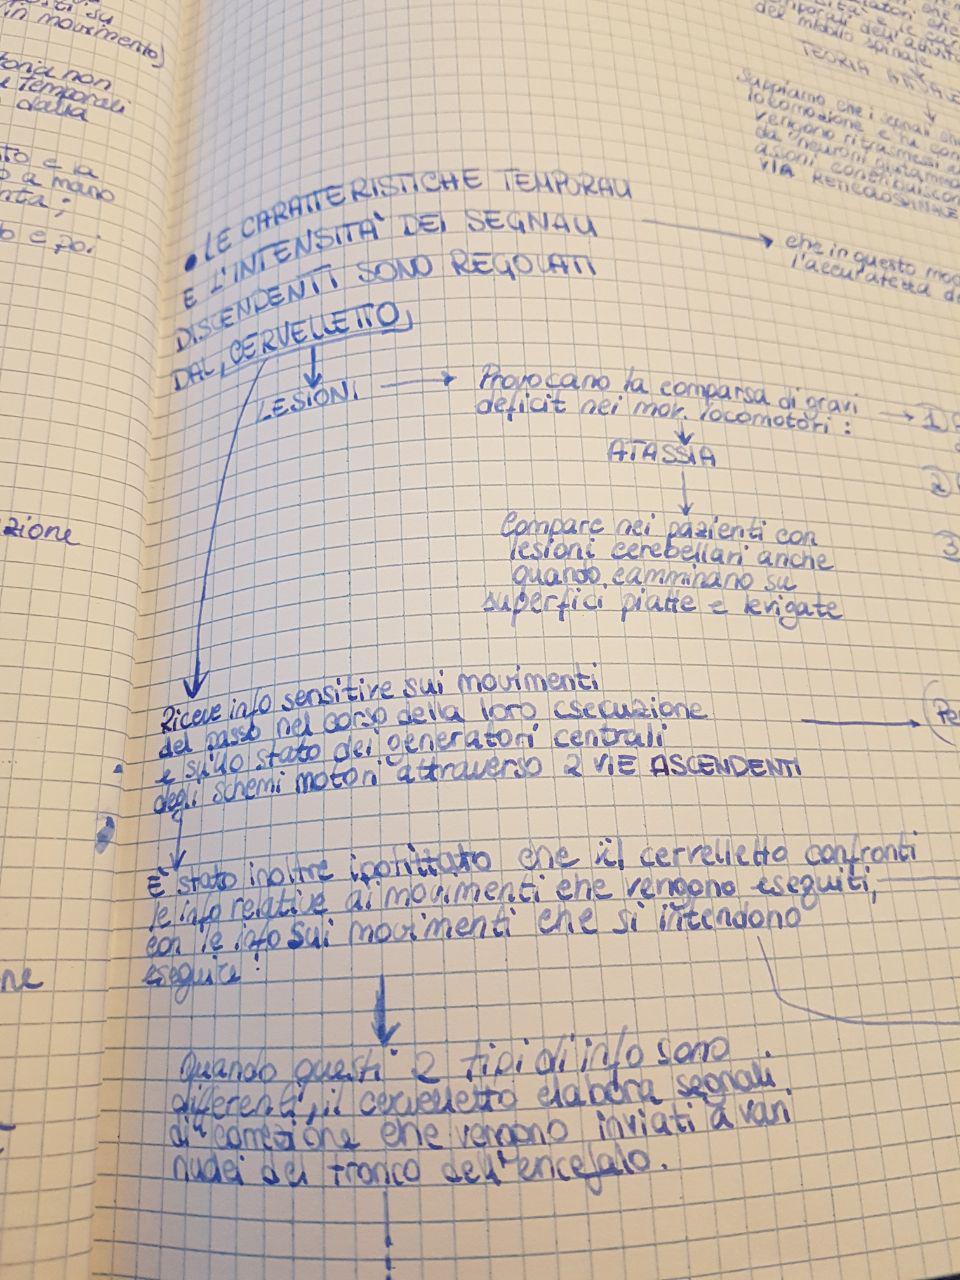 in movimento)
non
e temporali
dalla
e la
a mano
e poi
zione
ne
del midollo spinale
TEORIA
Sappiamo che i segnali
locomozione
vengono ritrasmessi
da neuroni
azioni
VIA RETICOLOSPINALE
• LE CARATTERISTICHE TEMPORALI
E L'INTENSITA' DEI SEGNALI
DISCENDENTI SONO REGOLATI
DAL CERVELLETTO
che in questo
l'accuratezza
LESIONI
Provocano la comparsa di gravi
deficit nei mov. locomotori:
1)
2)
3
ATASSIA
Compare nei pazienti con
lesioni cerebellari anche
quando camminano su
superfici piatte e levigate
Riceve info sensitive sui movimenti
del passo nel corso della loro esecuzione
e sullo stato dei generatori centrali
degli schemi motori attraverso 2 VIE ASCENDENTI
E' stato inoltre ipotizzato che il cervelletto confronti
le info relative ai movimenti che vengono eseguiti,
con le info sui movimenti che si intendono
eseguire:
Quando questi 2 tipi di info sono
differenti, il cervelletto elabora segnali
di correzione che vengono inviati a vari
nuclei del tronco dell'encefalo.